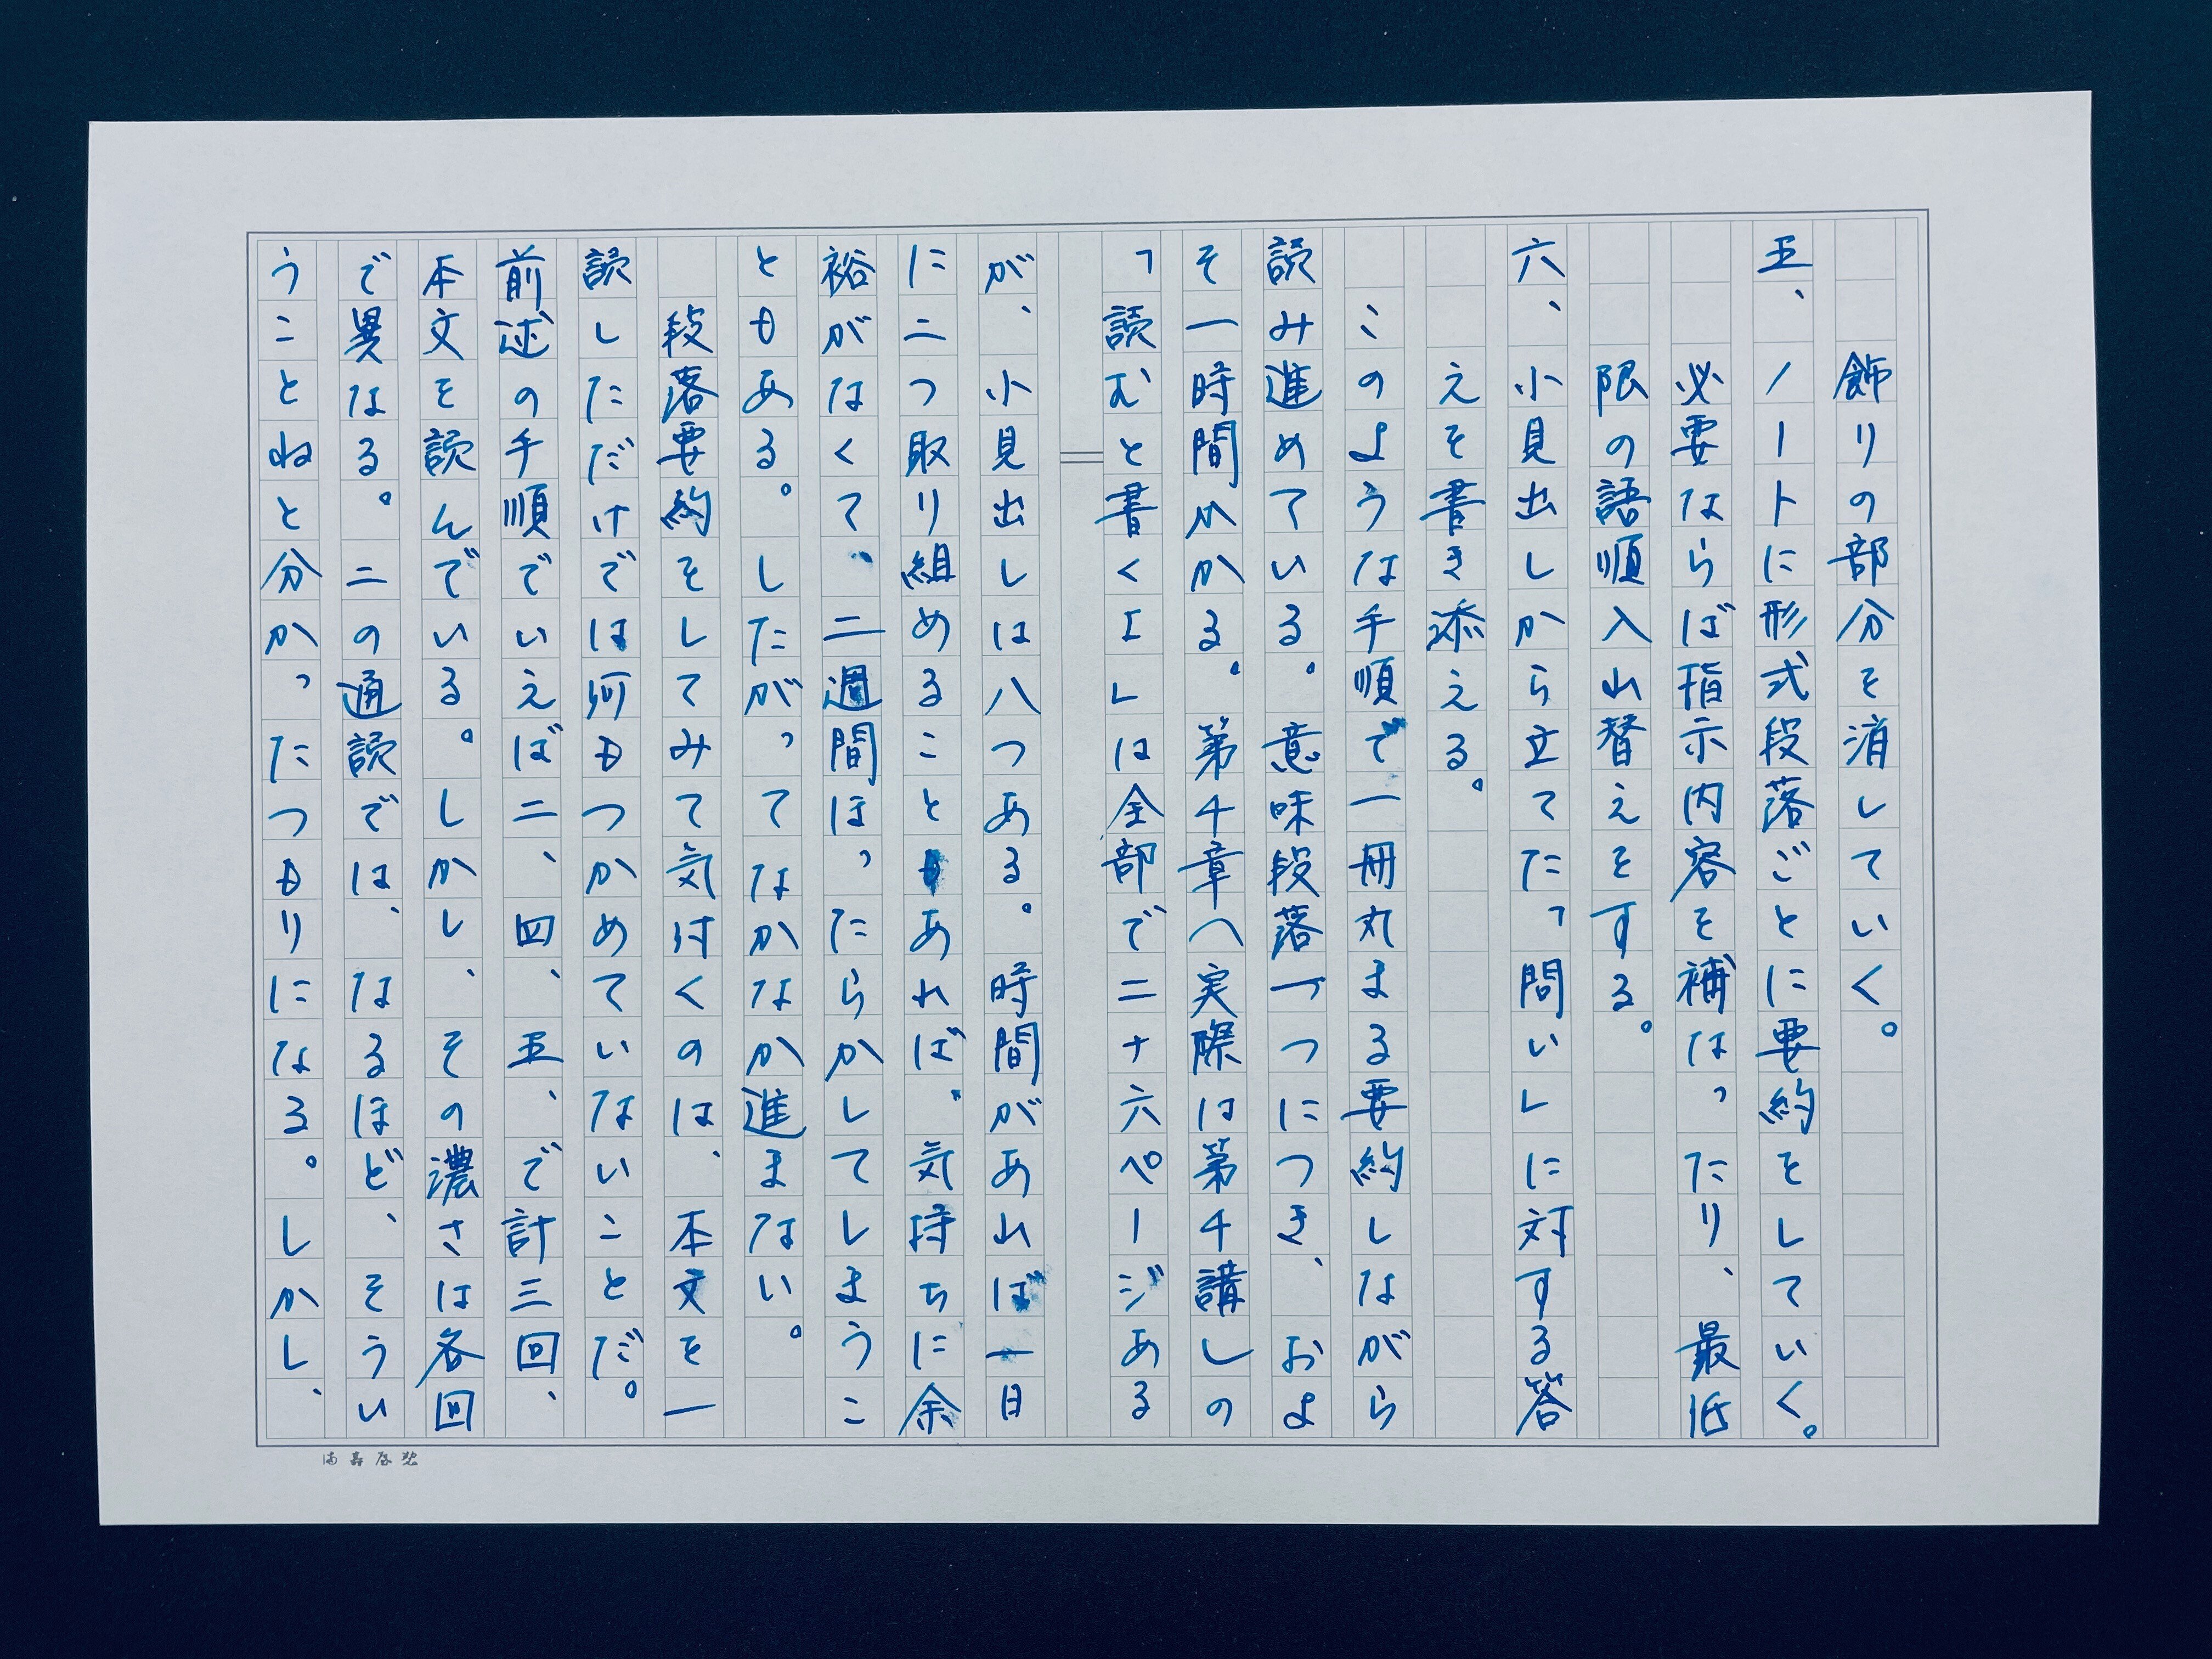 飾りの部分を消していく。
五、ノートに形式段落ごとに要約をしていく。
必要ならば指示内容を補はったり、最低
限の語順入れ替えをする。
六、小見出しから立てた「問い」に対する答
えを書き添える。
このような手順で一冊丸まる要約しながら
読み進めている。意味段落一つにつき、およ
そ一時間かかる。第4章へ実際は第4講しの
「読むと書くエ」は全部で二十六ページある
が、小見出しは八つある。時間があれば一日
に二つ取り組めることもあれば、気持ちに余
裕がなくて、二週間ほったらかしてしまうこ
ともある。したがってなかなか進まない。
段落要約をしてみて気付くのは、本文を一
読しただけでは何もつかめていないことだ。
前述の手順でいえば二、四、五、で計三回、
本文を読んでいる。しかし、その濃さは各回
で異なる。二の通読では、なるほど、そうい
うことねと分かったつもりになる。しかし、